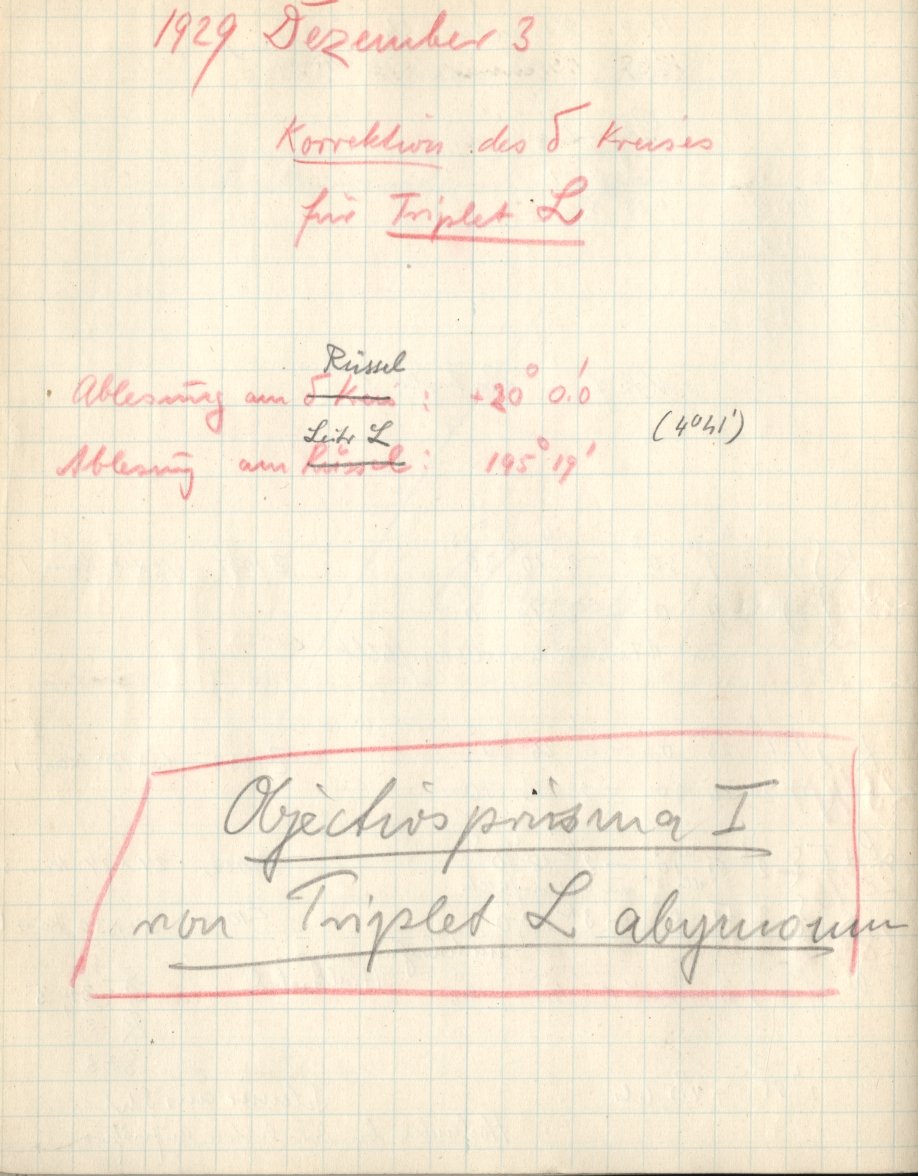 1929 Dezember 3
Korrektion des δ Kreises
für Triplet L
Rüssel
Ablesung am δ Kreis : +20° 0.'0
Leitr L
(4°41')
Ablesung am Rüssel : 195° 19'
Objectivprisma I
von Triplet L abgenommen